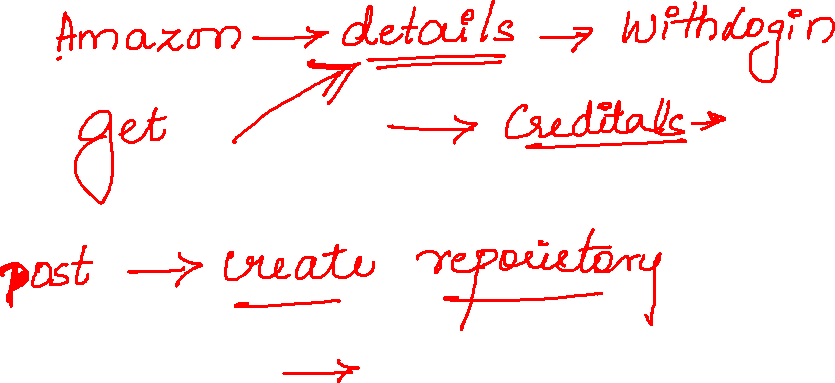 Amazon → details → WithLogin
get → Creditals →
post → create reporietory
→